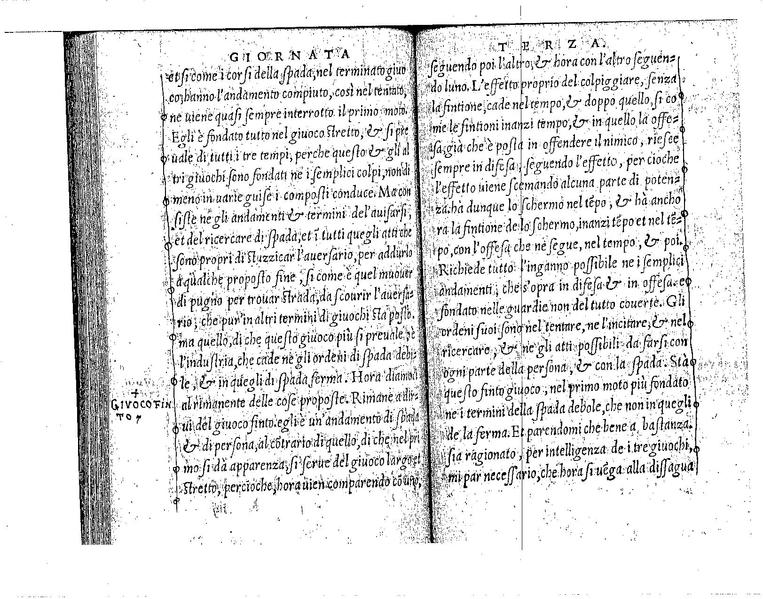 GIORNATA
et si come i corsi della spada, nel terminato giuo
co, hanno l'andamento compiuto, così nel tentato,
ne uiene quasi sempre interrotto il primo moto.
Egli è fondato tutto nel giuoco stretto, & si pre
uale di tutti i tre tempi, perche questo & gli al
tri giuochi sono fondati ne i semplici colpi, non di
meno in uarie guise i composti conduce. Ma con
siste ne gli andamenti & termini del'auisarsi,
et del ricercare di spada, et ī tutti quegli atti che
sono propri di stuzzicar l'auersario, per addurlo
à qualche proposto fine, si come è quel muouer
di pugno per trouar strada, da scourir l'auersa-
rio; che pur in altri termini di giuochi sta posto.
ma quello, di che questo giuoco più si preuale, è
l'industria, che cade ne gli ordeni di spada debi-
le, & in quegli di spada ferma. Hora diamoci
al rimanente delle cose proposte. Rimane a dir-
ui del giuoco finto. egli è un'andamento di spada
& di persona, al cōtrario di quello, di che nel pri
mo si dà apparenza, si serue del giuoco largo et
stretto, percioche, hora uien comparendo co uno,
+
GIVOCO FIN
TO
TERZA.
seguendo poi l'altro, & hora con l'altro seguen-
do l'uno. L'effetto proprio del colpiggiare, senza
la fintione, cade nel tempo, & doppo quello, si co
me le fintioni inanzi tempo, & in quello la offe-
sa; già che è posta in offendere il nimico, riesce
sempre in difesa; seguendo l'effetto, per cioche
l'effetto uiene scemando alcuna parte di poten-
za. hà dunque lo schermo nel tēpo, & hà ancho
ra la fintione de lo schermo, inanzi tēpo et nel tē-
po, con l'offesa che ne segue, nel tempo, & poi.
Richiede tutto l'inganno possibile ne i semplici
andamenti; che s'opra in difesa & in offesa. e
fondato nelle guardie non del tutto couerte. Gli
ordeni suoi sono nel tentare, ne l'incitare, & nel
ricercare, & ne gli atti possibili da farsi con
ogni parte della persona, & con la spada. Stà
questo finto giuoco, nel primo moto più fondato
ne i termini della spada debole, che non in quegli
de la ferma. Et parendomi che bene à bastanza
sia ragionato, per intelligenza de i tre giuochi,
mi par necessario, che hora si uēga alla dissagua